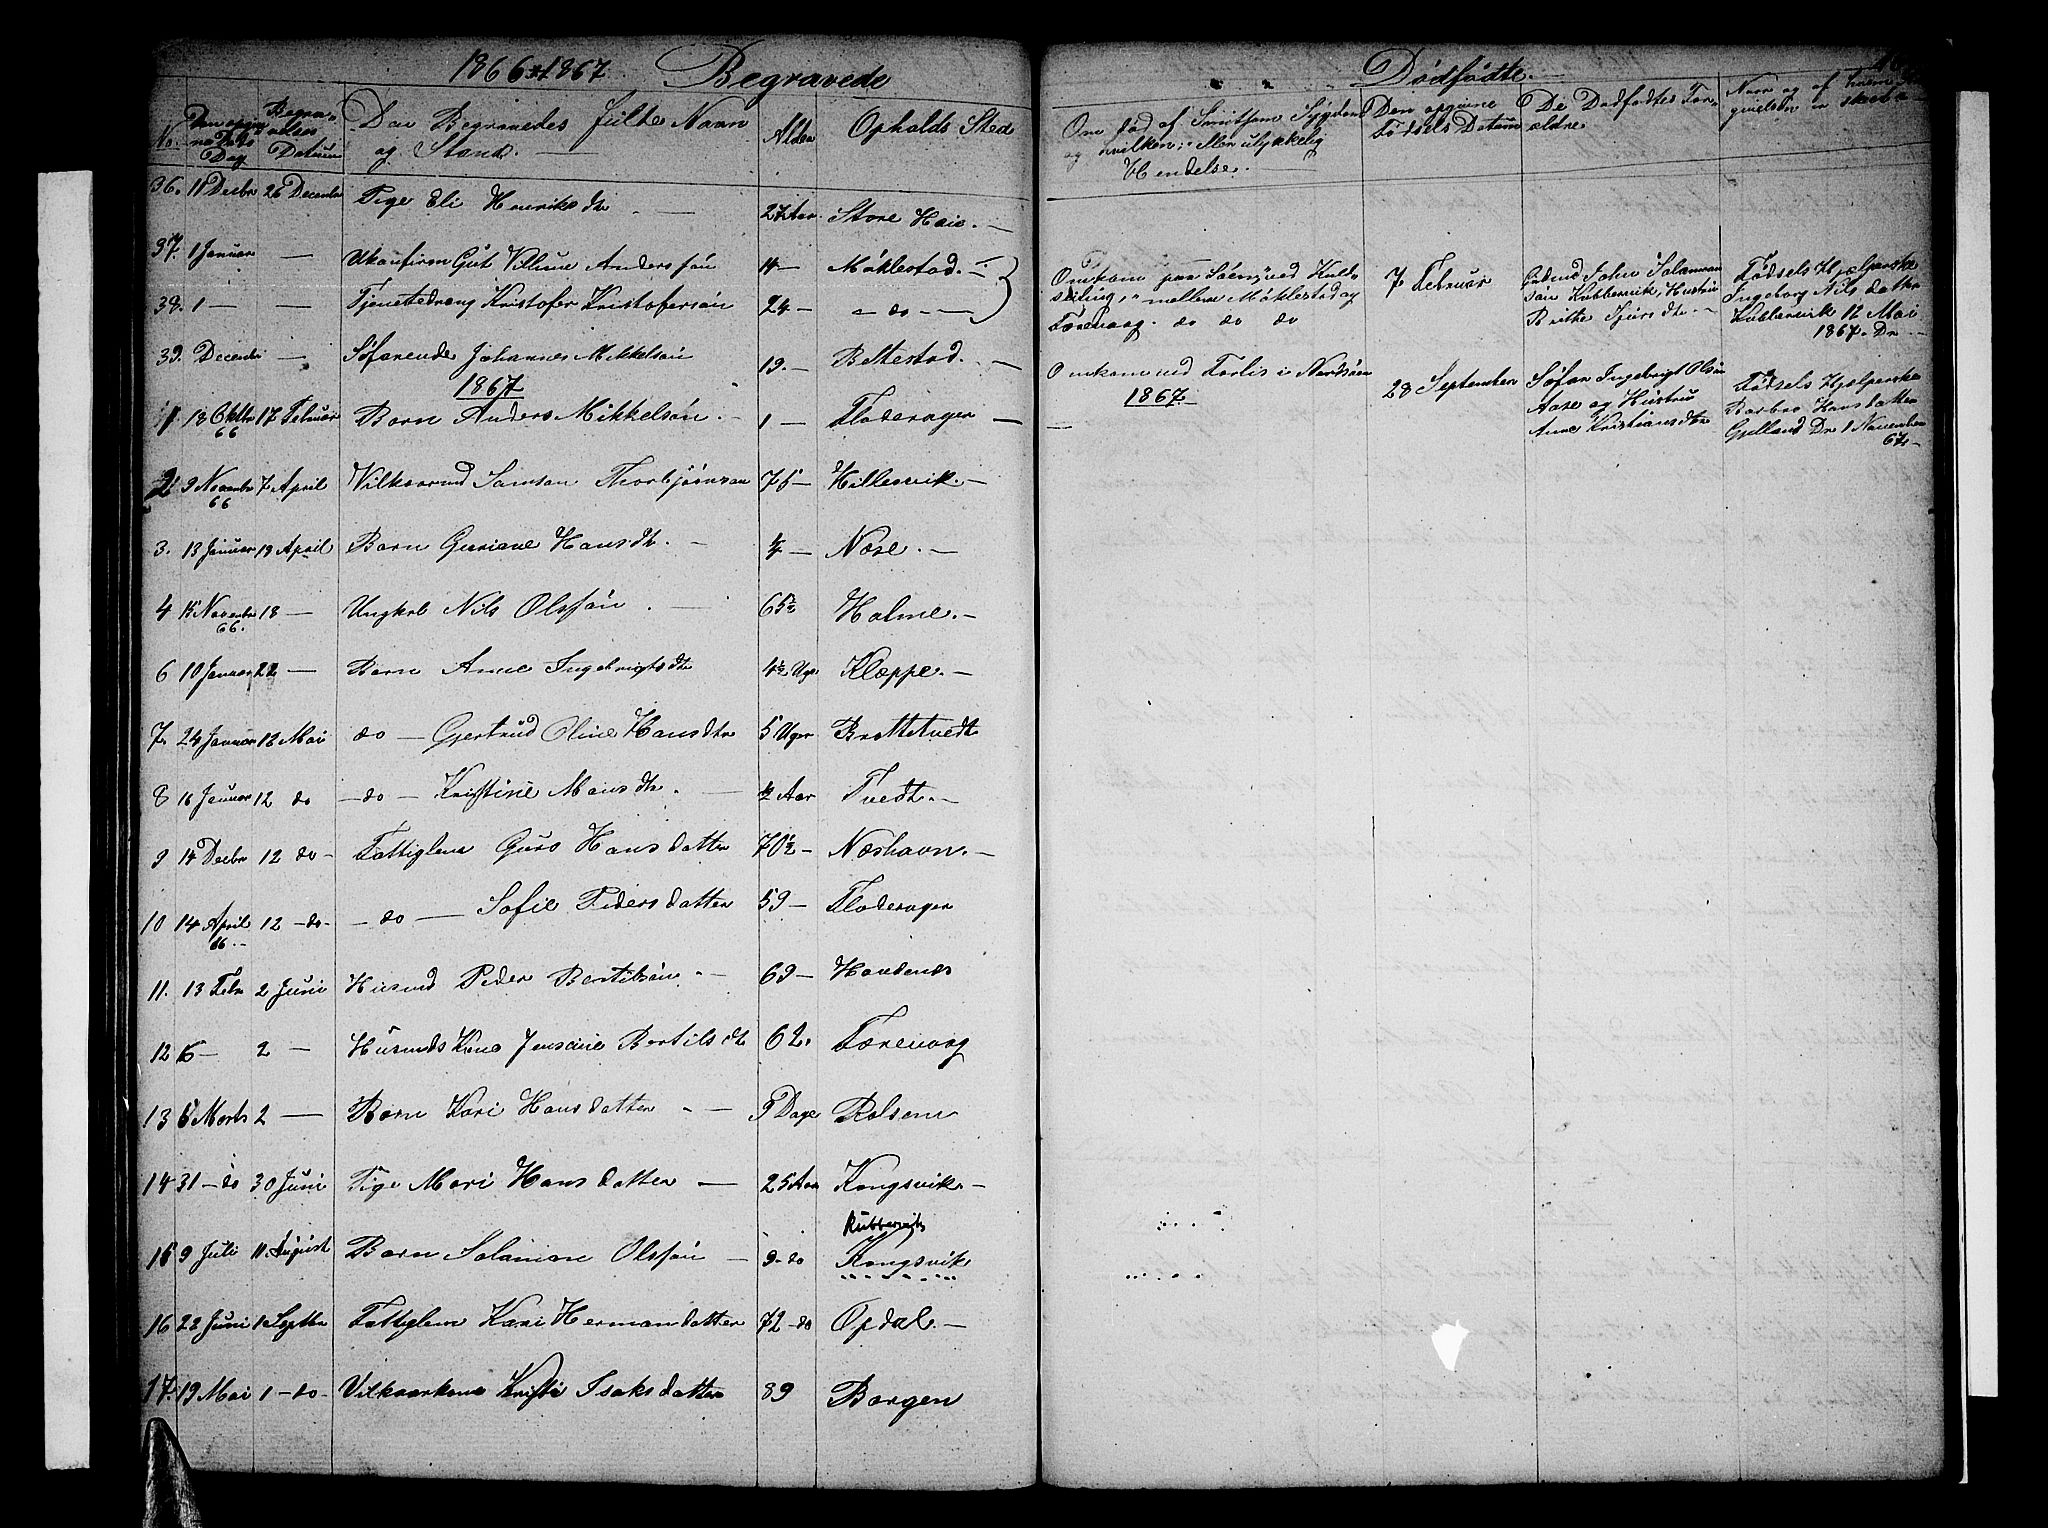 1866 & 1867 Begravede
No. Den opgivne Døds Dag Begravelses Datum Den Begravedes fulde Navn og Stand. Alder Opholds Sted
36. 11 Decbr 26 December Pige Eli Henriksdtr 27 Aar. Store Haie.
37. 1 Januar — Ukonfirm Gut Villum Andersøn 14 — Møklestad.
38. 1 — — Tjenestedreng Kristofer Kristofersøn 24 — do —
39. December — Søfarende Johannes Mikkelsøn 19. — Beltestad.
1867
1. 18 Oktbr 66 17 Februar Barn Anders Mikkelsøn. 1 — Floderager
2. 9 Novembr 66 7 April Vilkaarmd Samson Thorbjørnsen 75 — Hillesvik.
3. 13 Januar 19 April Barn Guriane Hansdtr. — Nøse.
4 15 Novembr 66. 18 — Ungkrl Nils Olsøn. 65½ Holme.
6 10 Januar 22 — Barn Anne Ingebrigtsdtr 4½ Uger Kleppe.
7. 24 Januar 12 Mai do — Gjertrud Oline Hansdtr 5 Uger Brattetvedt
8 16 Januar 12 do — do — Kristine Monsdtr. ½ Aar Tvedt.
9 14 Decbr 12 do Fattiglem Guro Hansdatter 70½ — Næshavn.
10 14 April 66 12 — do — do — Sofie Pedersdatter 59 — Floderager
11. 13 Febr 2 Juni Husmd Peder Bertilsøn 69 — Hovdenes
12 15 — 2 — Husmdskone Jensine Bertilsdtr 62. Førevaag
13 6 Marts 2 — Barn Kari Hansdatter 9 Dage Rolsenæ
14 31 — do 30 Juni Pige Mari Hansdatter — 25 Aar Kongsvik.
Kubbervik
15 9 Juli 11 August Barn Salamon Olsøn — 9 do Kongsvik
16 22 Juni 1 Septbr Fattiglem Kari Hermandatter 72 — do Opdal.
17. 19 Mai 1 — do — Vilkaarkone Kristi Isaksdatter 89 Borgen
Dødfødte.
Om død af Smitsom Sygdom og hvilken; Eller ulykkelig Hendelse. Den opgivne Fødsels Datum De Dødfødtes Forældre Navn og
Omkom paa Søen, ved Kuldseiling, mellem Møklestad og Førevaag. do do do
7 Februar
Gbrmd John Salamonsøn Kubbervik, Hustru Brithe Sjursdtr.
Fødsels Hjelperske Ingeborg Nilsdatter Kubbervik 12 Mai 1867. Dr
Omkom ved Forlis i Nordsøen
1867
28 September
Søfar Ingebrigt Olsøn Aase og Hustru Anne Kristiansdtr
Fødsels Hjelperske Barbro Hansdatter Gjelland Dr 1 November 67.